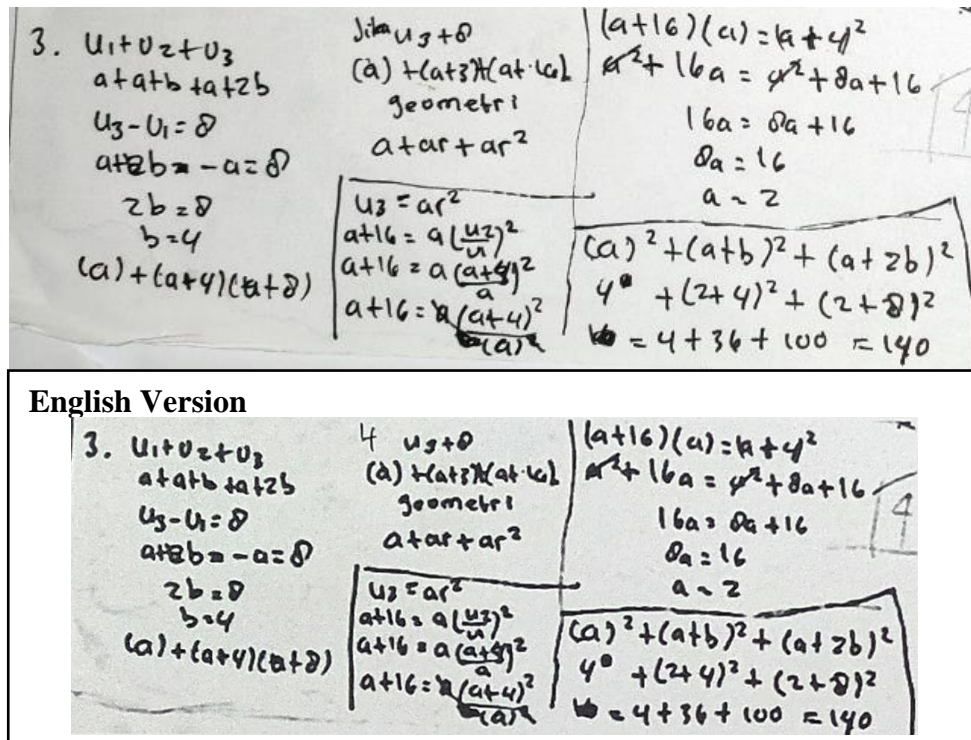 3. U1+U2+U3
a+a+b+a+2b
U3-U1=8
a+2b=-a=8
2b=8
b=4
(a)+(a+4)(a+8)
Jika U3+8
geometri
a+ar+ar²
U3=ar²
a+16=a
a+16=a
a+16=
(a+16)(a)=a+4²
a²+16a=a²+8a+16
16a=8a+16
8a=16
a=2
(a)²+(a+b)²+(a+2b)²
4 +(2+4)²+(2+8)²
=4+36+100=140
English Version
3. U1+U2+U3
a+a+b+a+2b
U3-U1=8
a+2b=-a=8
2b=8
b=4
(a)+(a+4)(a+8)
4 U3+8
geometri
a+ar+ar²
U3=ar²
a+16=a
a+16=a
a+16=
(a+16)(a)=a+4²
a²+16a=a²+8a+16
16a=8a+16
8a=16
a=2
(a)²+(a+b)²+(a+2b)²
4 +(2+4)²+(2+8)²
=4+36+100=140